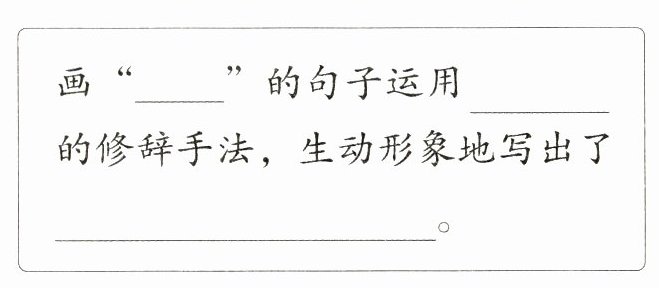 画“______”的句子运用__________
的修辞手法，生动形象地写出了
___________________________。